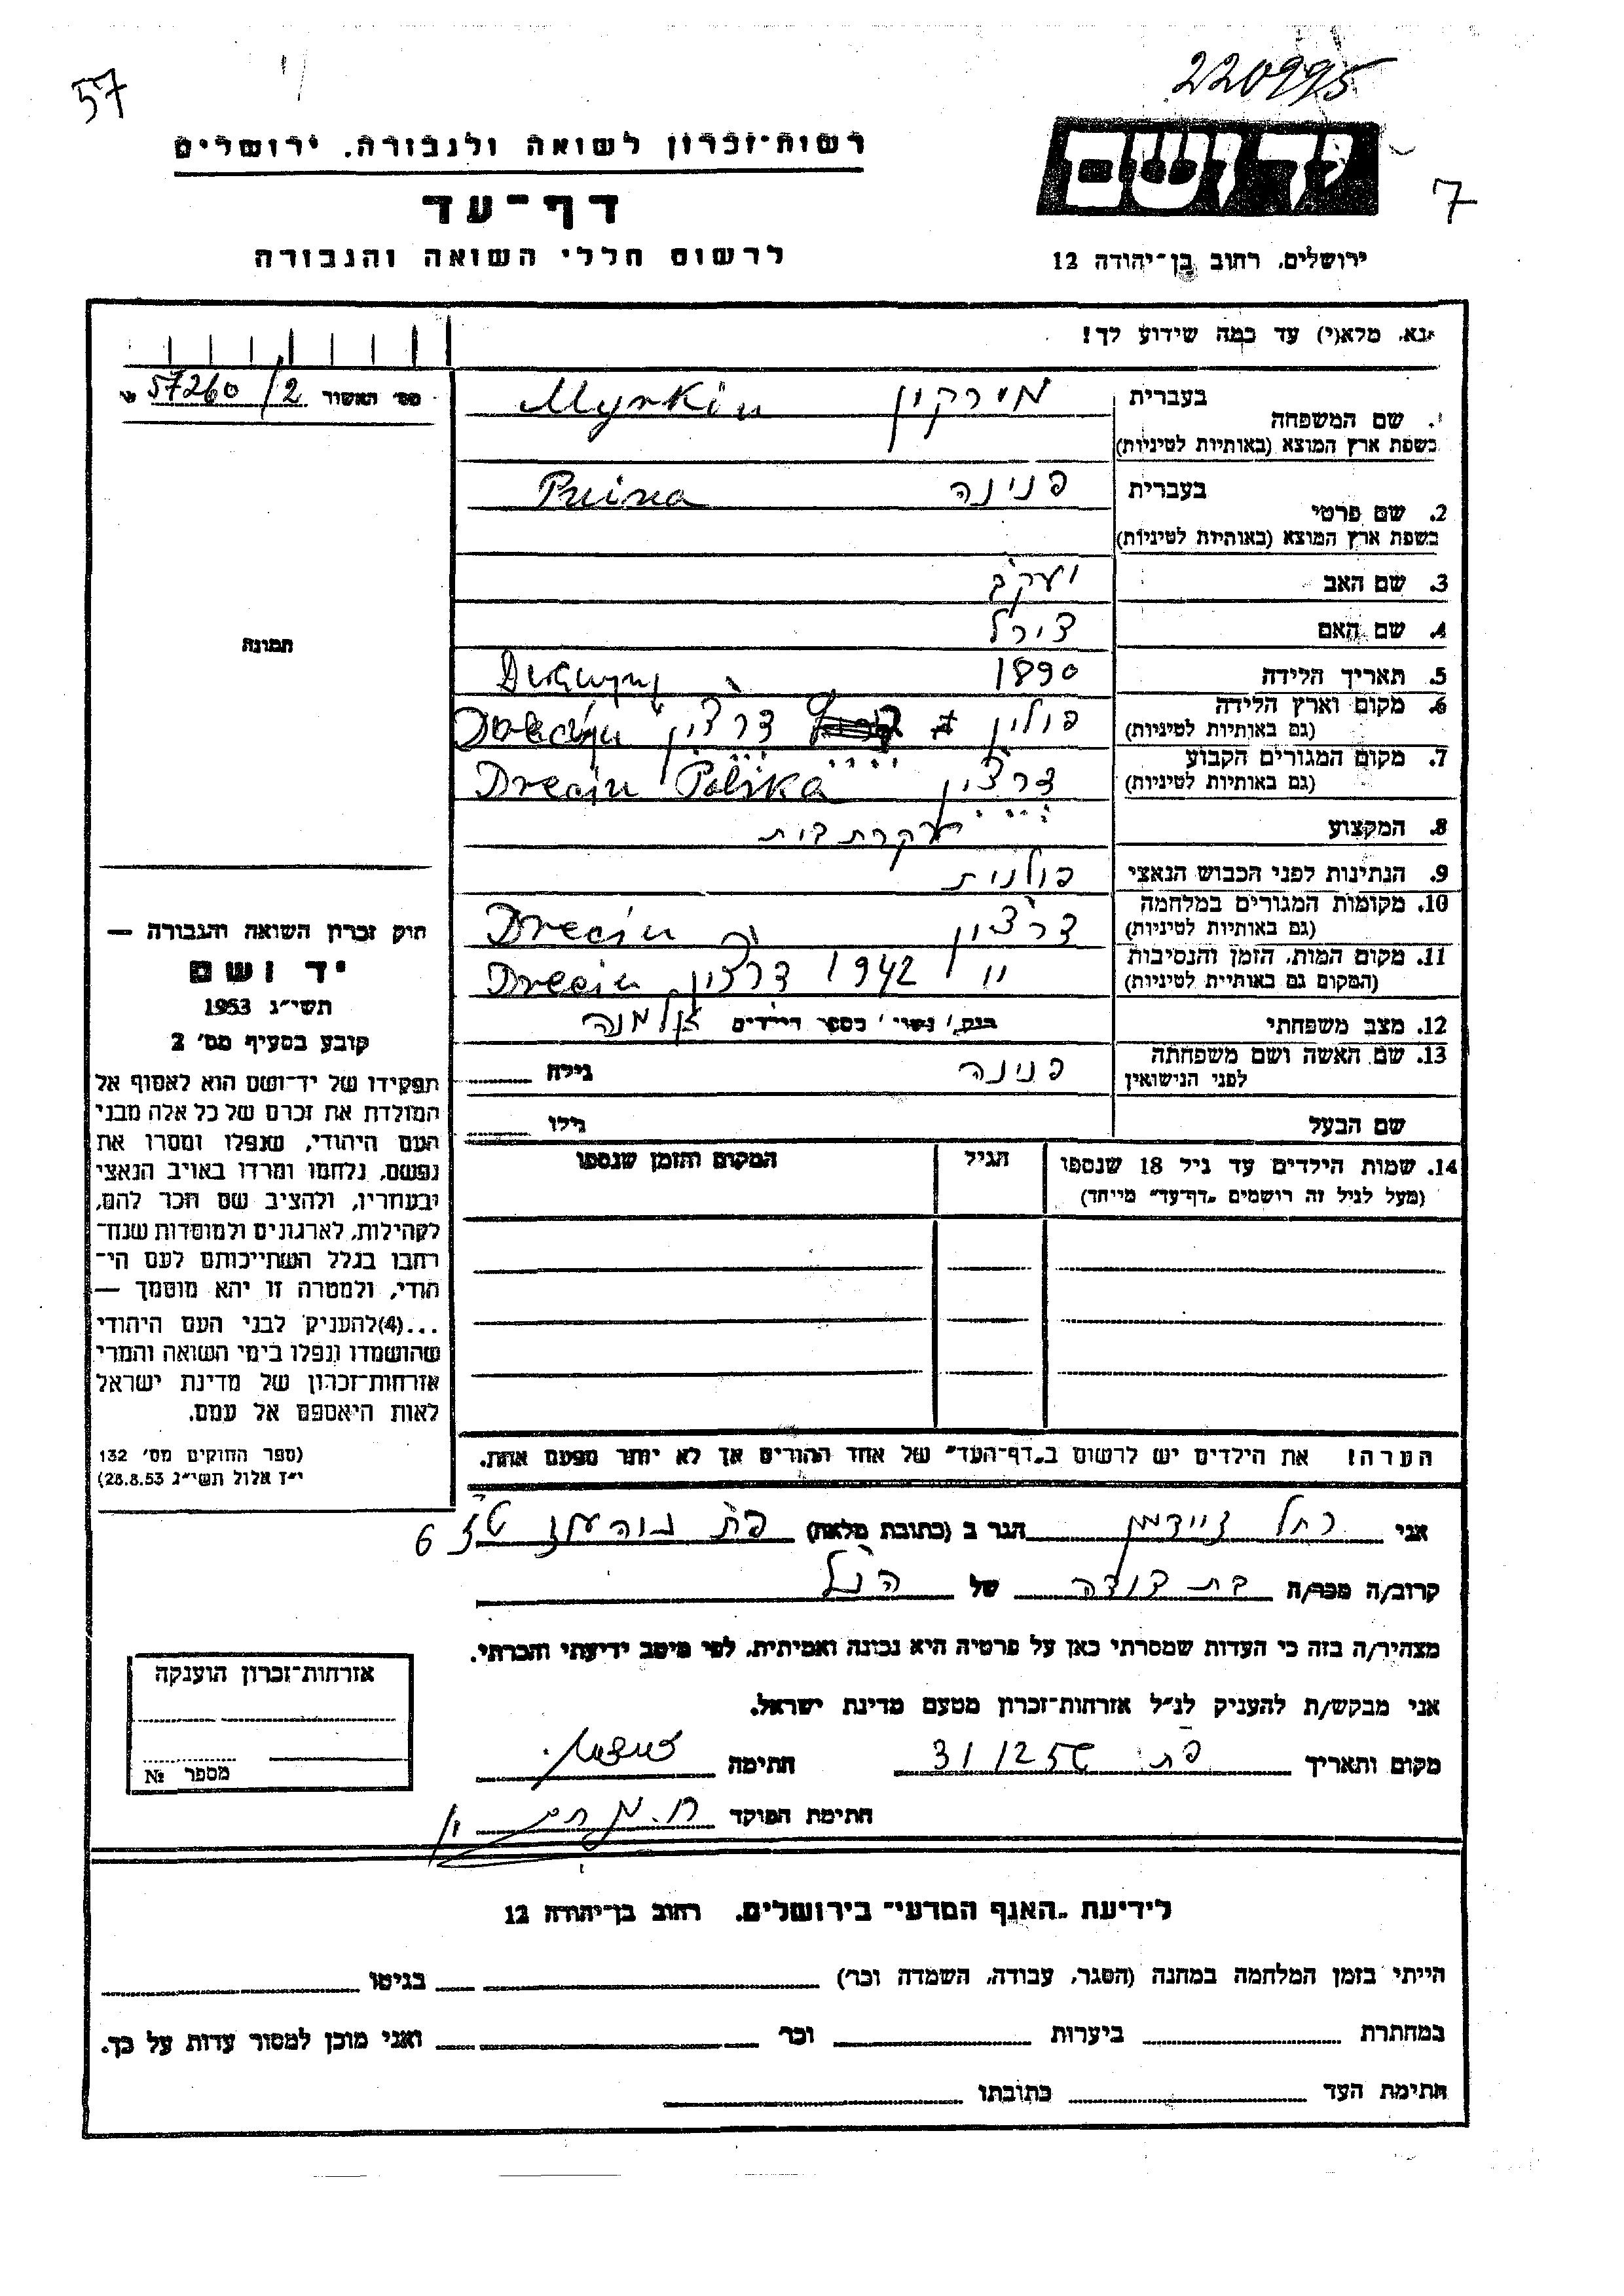 57
220995
רשות־זכרון לשואה ולגבורה, ירושלים
יד ושם
7
דף־עד
לרשום חללי השואה והגבורה
ירושלים, רחוב בן־יהודה 12
נא מלא(י) עד כמה שידוע לך!
מס׳ האשור 57260/2
1. שם המשפחה בעברית מירקין Myrkin
בשפת ארץ המוצא (באותיות לטיניות)
2. שם פרטי בעברית פנינה Pnina
בשפת ארץ המוצא (באותיות לטיניות)
3. שם האב יעקב
4. שם האם צירל
5. תאריך הלידה 1890
6. מקום וארץ הלידה פולין דרצ'ין
(גם באותיות לטיניות)
7. מקום המגורים הקבוע דרצ'ין Dreciu Polska
(גם באותיות לטיניות)
8. המקצוע עקרת בית
9. הנתינות לפני הכבוש הנאצי פולנית
10. מקומות המגורים במלחמה דרצ'ין Dreciu
(גם באותיות לטיניות)
11. מקום המות, הזמן והנסיבות 1942 דרצ'ין Dreciu
(המקום גם באותיות לטיניות)
12. מצב משפחתי רווק / נשוי / מספר הילדים אלמנה
13. שם האשה ושם משפחתה פנינה גילה
לפני הנישואין
שם הבעל גילו
14. שמות הילדים עד גיל 18 שנספו הגיל המקום והזמן שנספו
(מעל לגיל זה רושמים „דף־עד" מיוחד)
הערה! את הילדים יש לרשום ב„דף־העד" של אחד ההורים אך לא יותר מפעם אחת.
תמונה
חוק זכרון השואה והגבורה —
יד ושם
תשי״ג 1953
קובע בסעיף מס׳ 2
תפקידו של יד־ושם הוא לאסוף אל
המולדת את זכרם של כל אלה מבני
העם היהודי, שנפלו ומסרו את
נפשם, נלחמו ומרדו באויב הנאצי
ובעוזריו, ולהציב שם וזכר להם,
לקהילות, לארגונים ולמוסדות שנח־
רבו בגלל השתייכותם לעם הי־
הודי, ולמטרה זו יהא מוסמך —
...(4) להעניק לבני העם היהודי
שהושמדו ונפלו בימי השואה והמרי
אזרחות־זכרון של מדינת ישראל
לאות היאספם אל עמם.
(ספר החוקים מס׳ 132
י״ז אלול תשי״ג 28.8.53)
אני רחל זיידמן הגר ב (כתובת מלאה) פ"ת 6
קרוב/ה מכר/ה בת דודה של הנ"ל
מצהיר/ה בזה כי העדות שמסרתי כאן על פרטיה היא נכונה ואמיתית, לפי מיטב ידיעתי והכרתי.
אני מבקש/ת להעניק לנ״ל אזרחות־זכרון מטעם מדינת ישראל.
מקום ותאריך פ"ת 31/12 56 חתימה
חתימת הפוקד
אזרחות־זכרון הוענקה
מספר №
לידיעת „האגף המדעי" בירושלים, רחוב בן־יהודה 12
הייתי בזמן המלחמה במחנה (הסגר, עבודה, השמדה וכר׳) בגיטו
במחתרת ביערות וכר׳ ואני מוכן למסור עדות על כך.
חתימת העד כתובתו